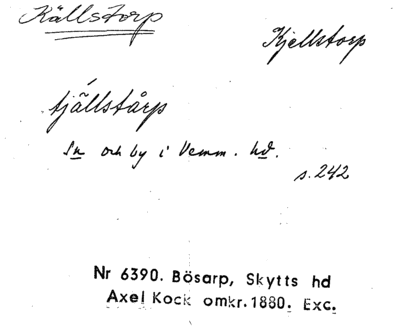 Källstorp
Kjellstorp
tjällstårp
Sn och by i Vemm. hd.
s. 242
Nr 6390. Bösarp, Skytts hd
Axel Kock omkr. 1880. Exc.